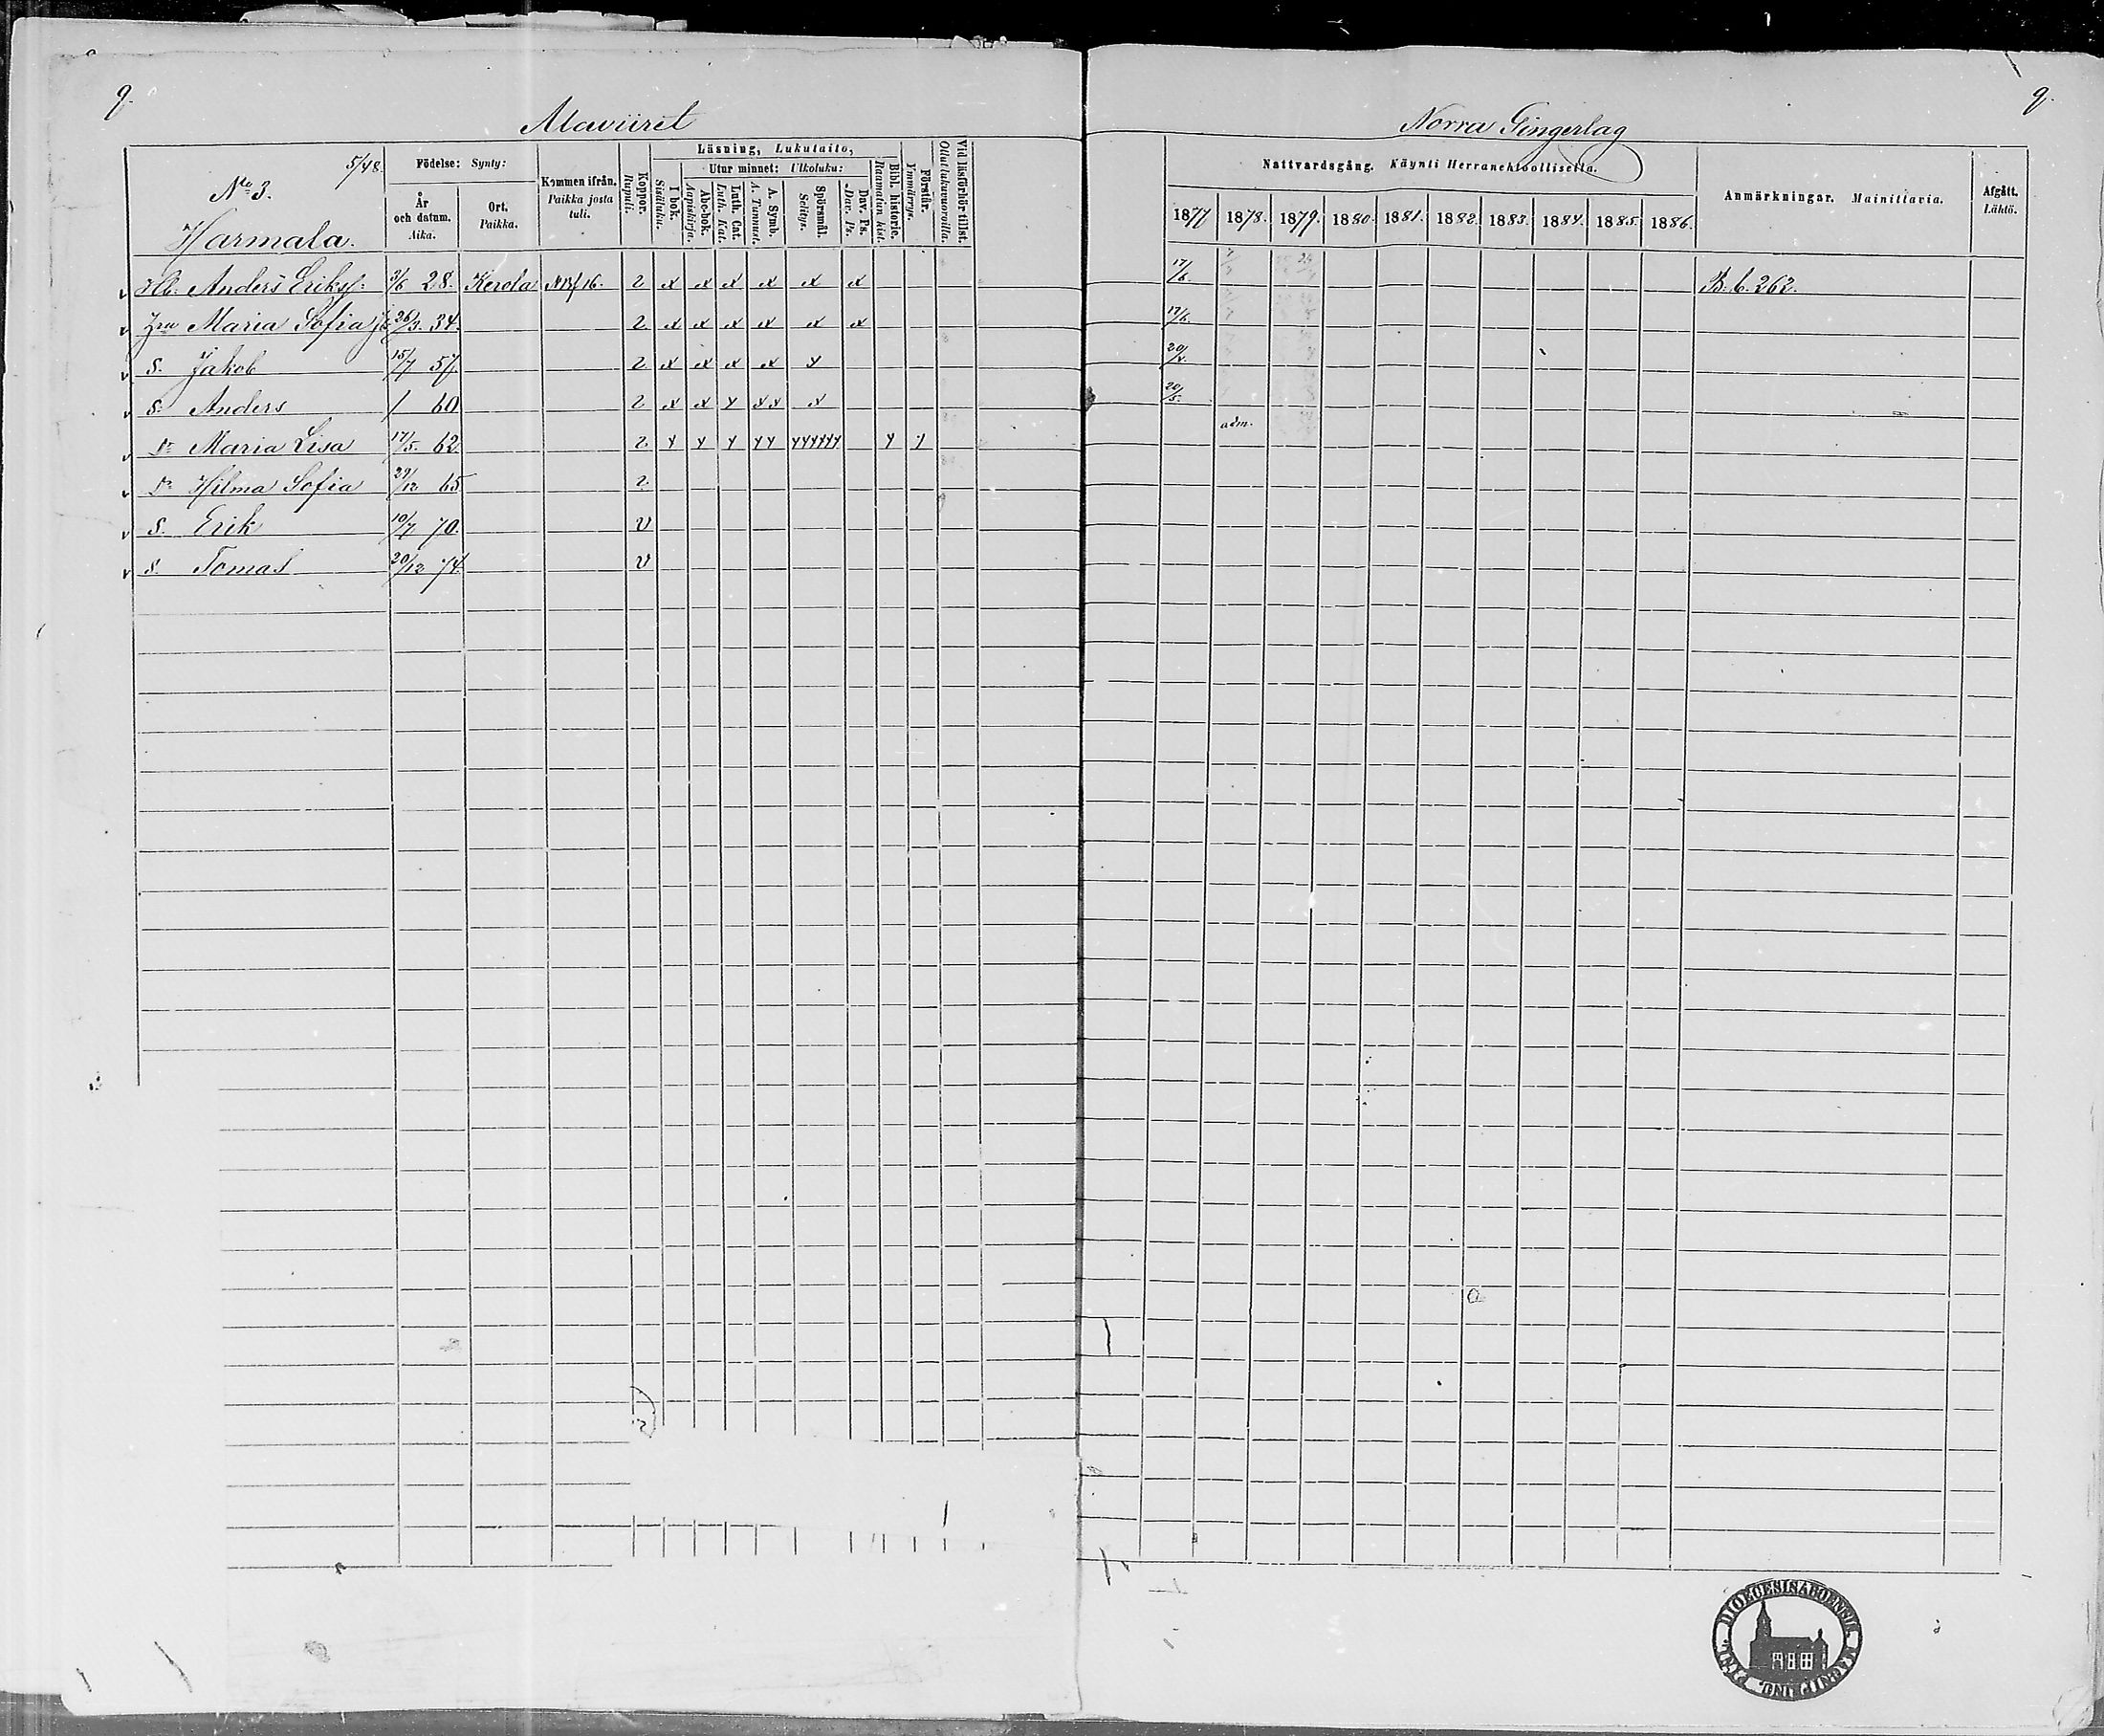 9.
Alaviiret
Norra Tingerlag
9.
No 3.
5/48.
Harmala.
Födelse: Synty:
År och datum. Aika.
Ort. Paikka.
Kommen ifrån. Paikka josta tuli.
Koppor. Rupuli.
Läsning, Lukutaito,
I bok. Sisäluku.
Utur minnet: Ulkoluku:
Abc-bok. Aapiskirja.
Luth. Cat. Luth. Kat.
A. Symb. A. Tunnust.
Spörsmål. Selitys.
Dav. Ps. Dav. Ps.
Bibl. historie. Raamatun hist.
Förstår. Ymmärrys.
Vid läsförhör tillst. Ollut lukuvuoroilla.
Nattvardsgång. Käynti Herranehtoollisella.
1877 1878. 1879. 1880. 1881. 1882. 1883. 1884. 1885. 1886.
Anmärkningar. Mainittavia.
Afgått. Lähtö.
Anders Eriks: 3/6 28. Kerola 16. 2 x x x x x x 17/6. B. b. 262.
Maria Sofia 26/3. 34. 2 x x x x x x 17/6.
S. Jakob 15/7 57. 2 x x x x y 20/
S. Anders / 60 2 x x y x x x 20/5.
Dr Maria Lisa 17/5. 62. 2 y y y y y y y y y y y y y adm.
Dr Hilma Sofia 29/12 65 2
S. Erik 10/7 70. v
S. Tomas 20/12 74. v
DIOECESIS ABOENSIS
MAGNI PRINC. FINL.